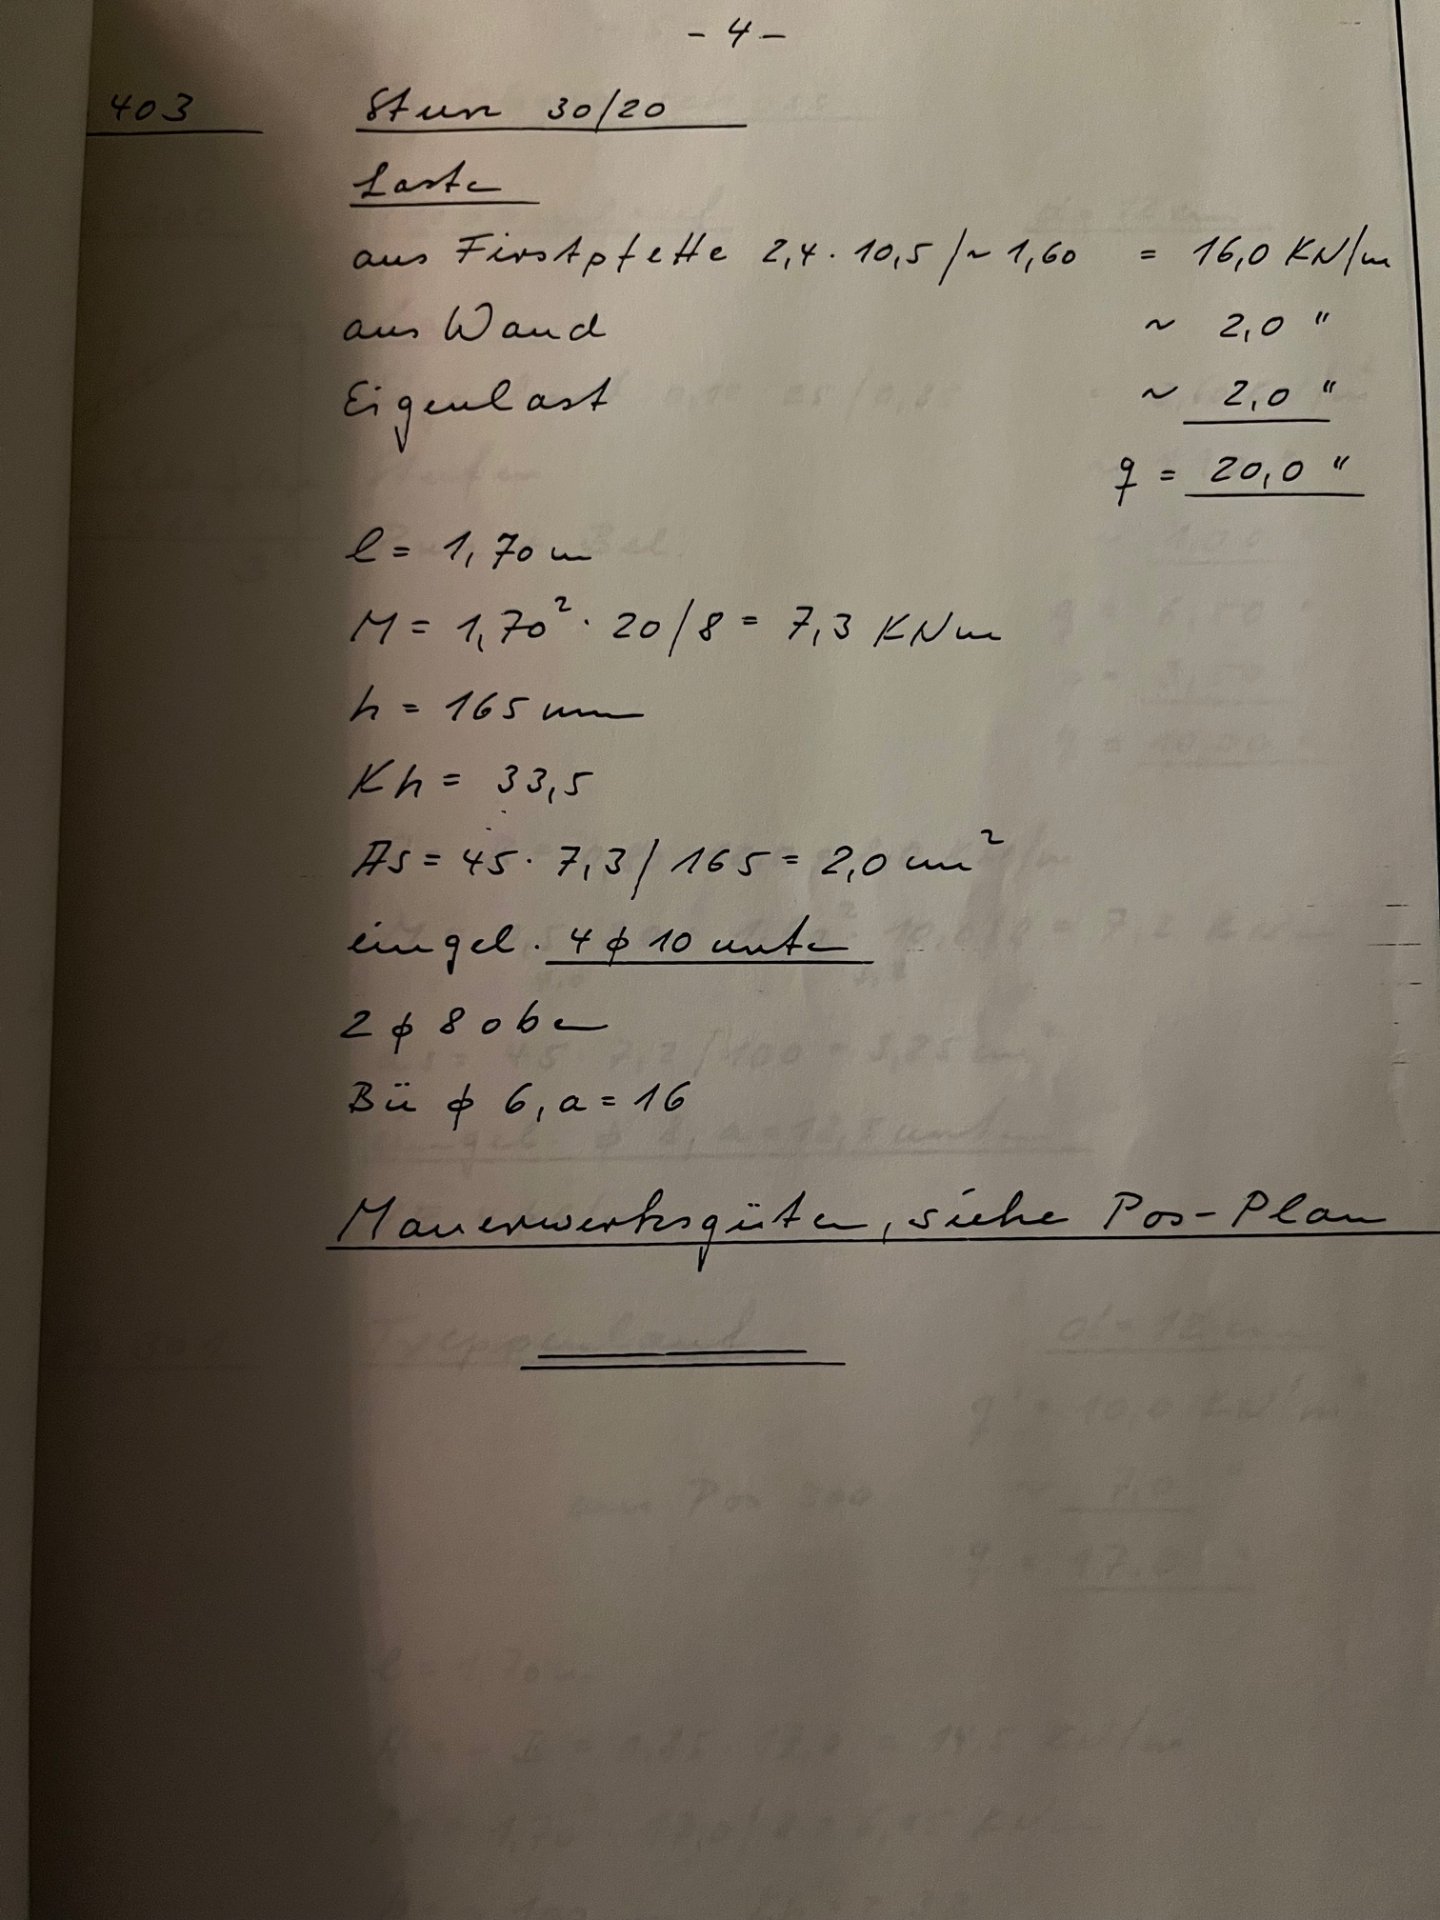 - 4 -
403 Sturz 30/20
Lasten
aus Firstpfette 2,4 · 10,5 / ~ 1,60 = 16,0 KN/m
aus Wand ~ 2,0 "
Eigenlast ~ 2,0 "
q = 20,0 "
l = 1,70 m
M = 1,70² · 20 / 8 = 7,3 KNm
h = 165 mm
Kh = 33,5
As = 45 · 7,3 / 165 = 2,0 cm²
eingel. 4 ϕ 10 unten
2 ϕ 8 oben
Bü ϕ 6, a = 16
Mauerwerksgüten, siehe Pos-Plan